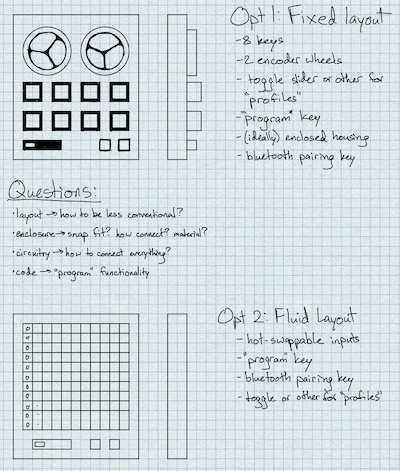 Opt 1: Fixed layout
- 8 keys
- 2 encoder wheels
- toggle slider or other for
"profiles"
- "program" key
- (ideally) enclosed housing
- bluetooth pairing key
Questions:
• layout → how to be less conventional?
• enclosure → snap fit? how connect? material?
• circuitry → how to connect everything?
• code → "program" functionality
Opt 2: Fluid Layout
- hot-swappable inputs
- "program" key
- bluetooth pairing key
- toggle or other for "profiles"